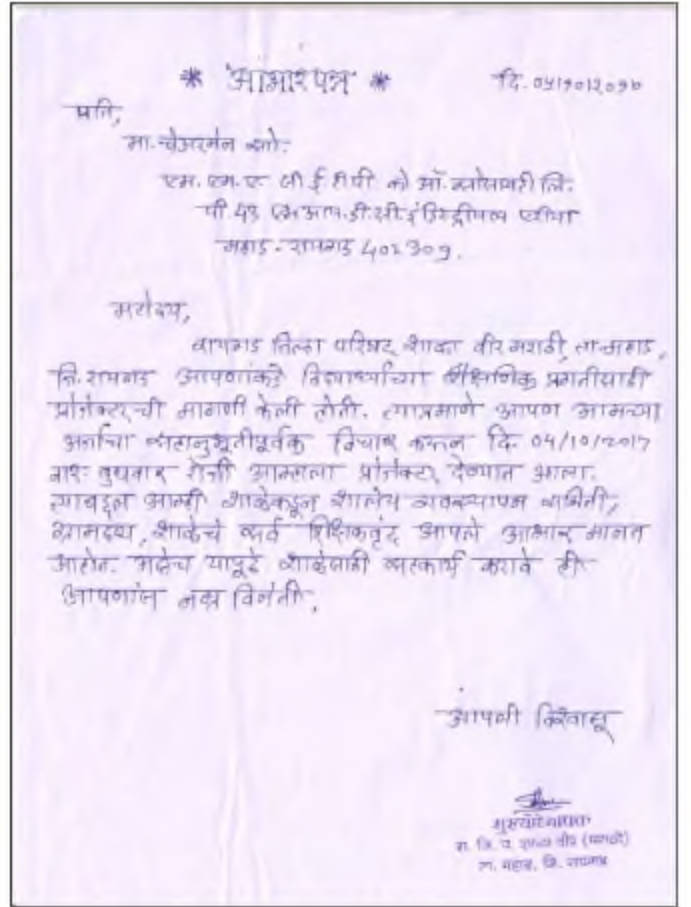 * आभारपत्र *
दि. ०५/१०/२०१७
प्रति,
मा. चेअरमेन सो.
एम. एम. ए. सी ई टी पी को ऑ. सोसायटी लि.
पी ४३ एम आय. डी. सी. इंडिस्ट्रीयल एरीया
महाड - रायगड 402309.
महोदय,
रायगड जिल्हा परिषद, शाळा वीर मराठी, ता-महाड,
जि. रायगड आपणांकडे विद्यार्थ्यांच्या शैक्षणिक प्रगतीसाठी
प्रोजेक्टर ची मागणी केली होती. त्याप्रमाणे आपण आमच्या
अर्जाचा सहानुभूतीपूर्वक विचार करून दि. 04/10/2017
वार: बुधवार रोजी आम्हाला प्रोजेक्टर देण्यात आला.
त्याबद्दल आम्ही शाळेकडून शालेय व्यवस्थापन समिती,
ग्रामस्थ, शाळेचे सर्व शिक्षकवृंद आपले आभार मानत
आहोत. असेच यापुढे शाळेसाठी सहकार्य करावे ही
आपणांस नम्र विनंती.
आपली विश्वासू
मुख्याध्यापक
रा. जि. प. शाळा वीर (मराठी)
ता. महाड, जि. रायगड